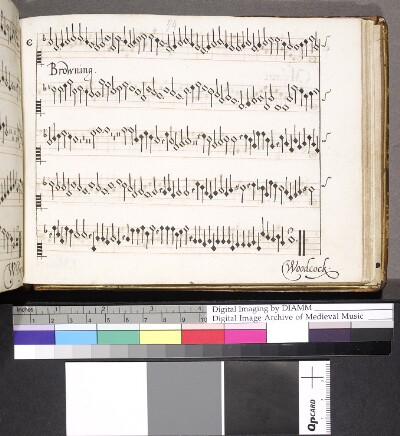 Browning.
Woodcock
inches 1 2 3 4
1 2 3 4 5 6 7 8 9 10
Digital Imaging by DIAMM
Digital Image Archive of Medieval Music
QPCARD